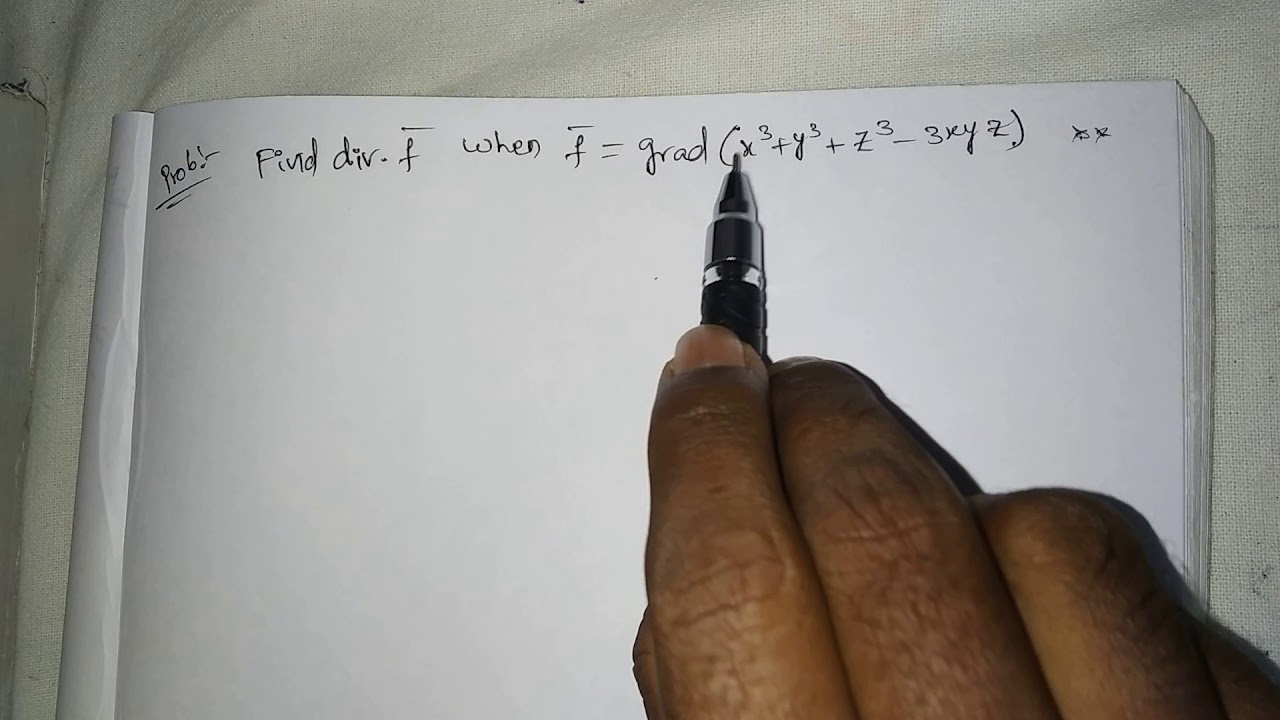 Prob:- Find div. f̅ when f̅ = grad (x³+y³+z³-3xyz) **